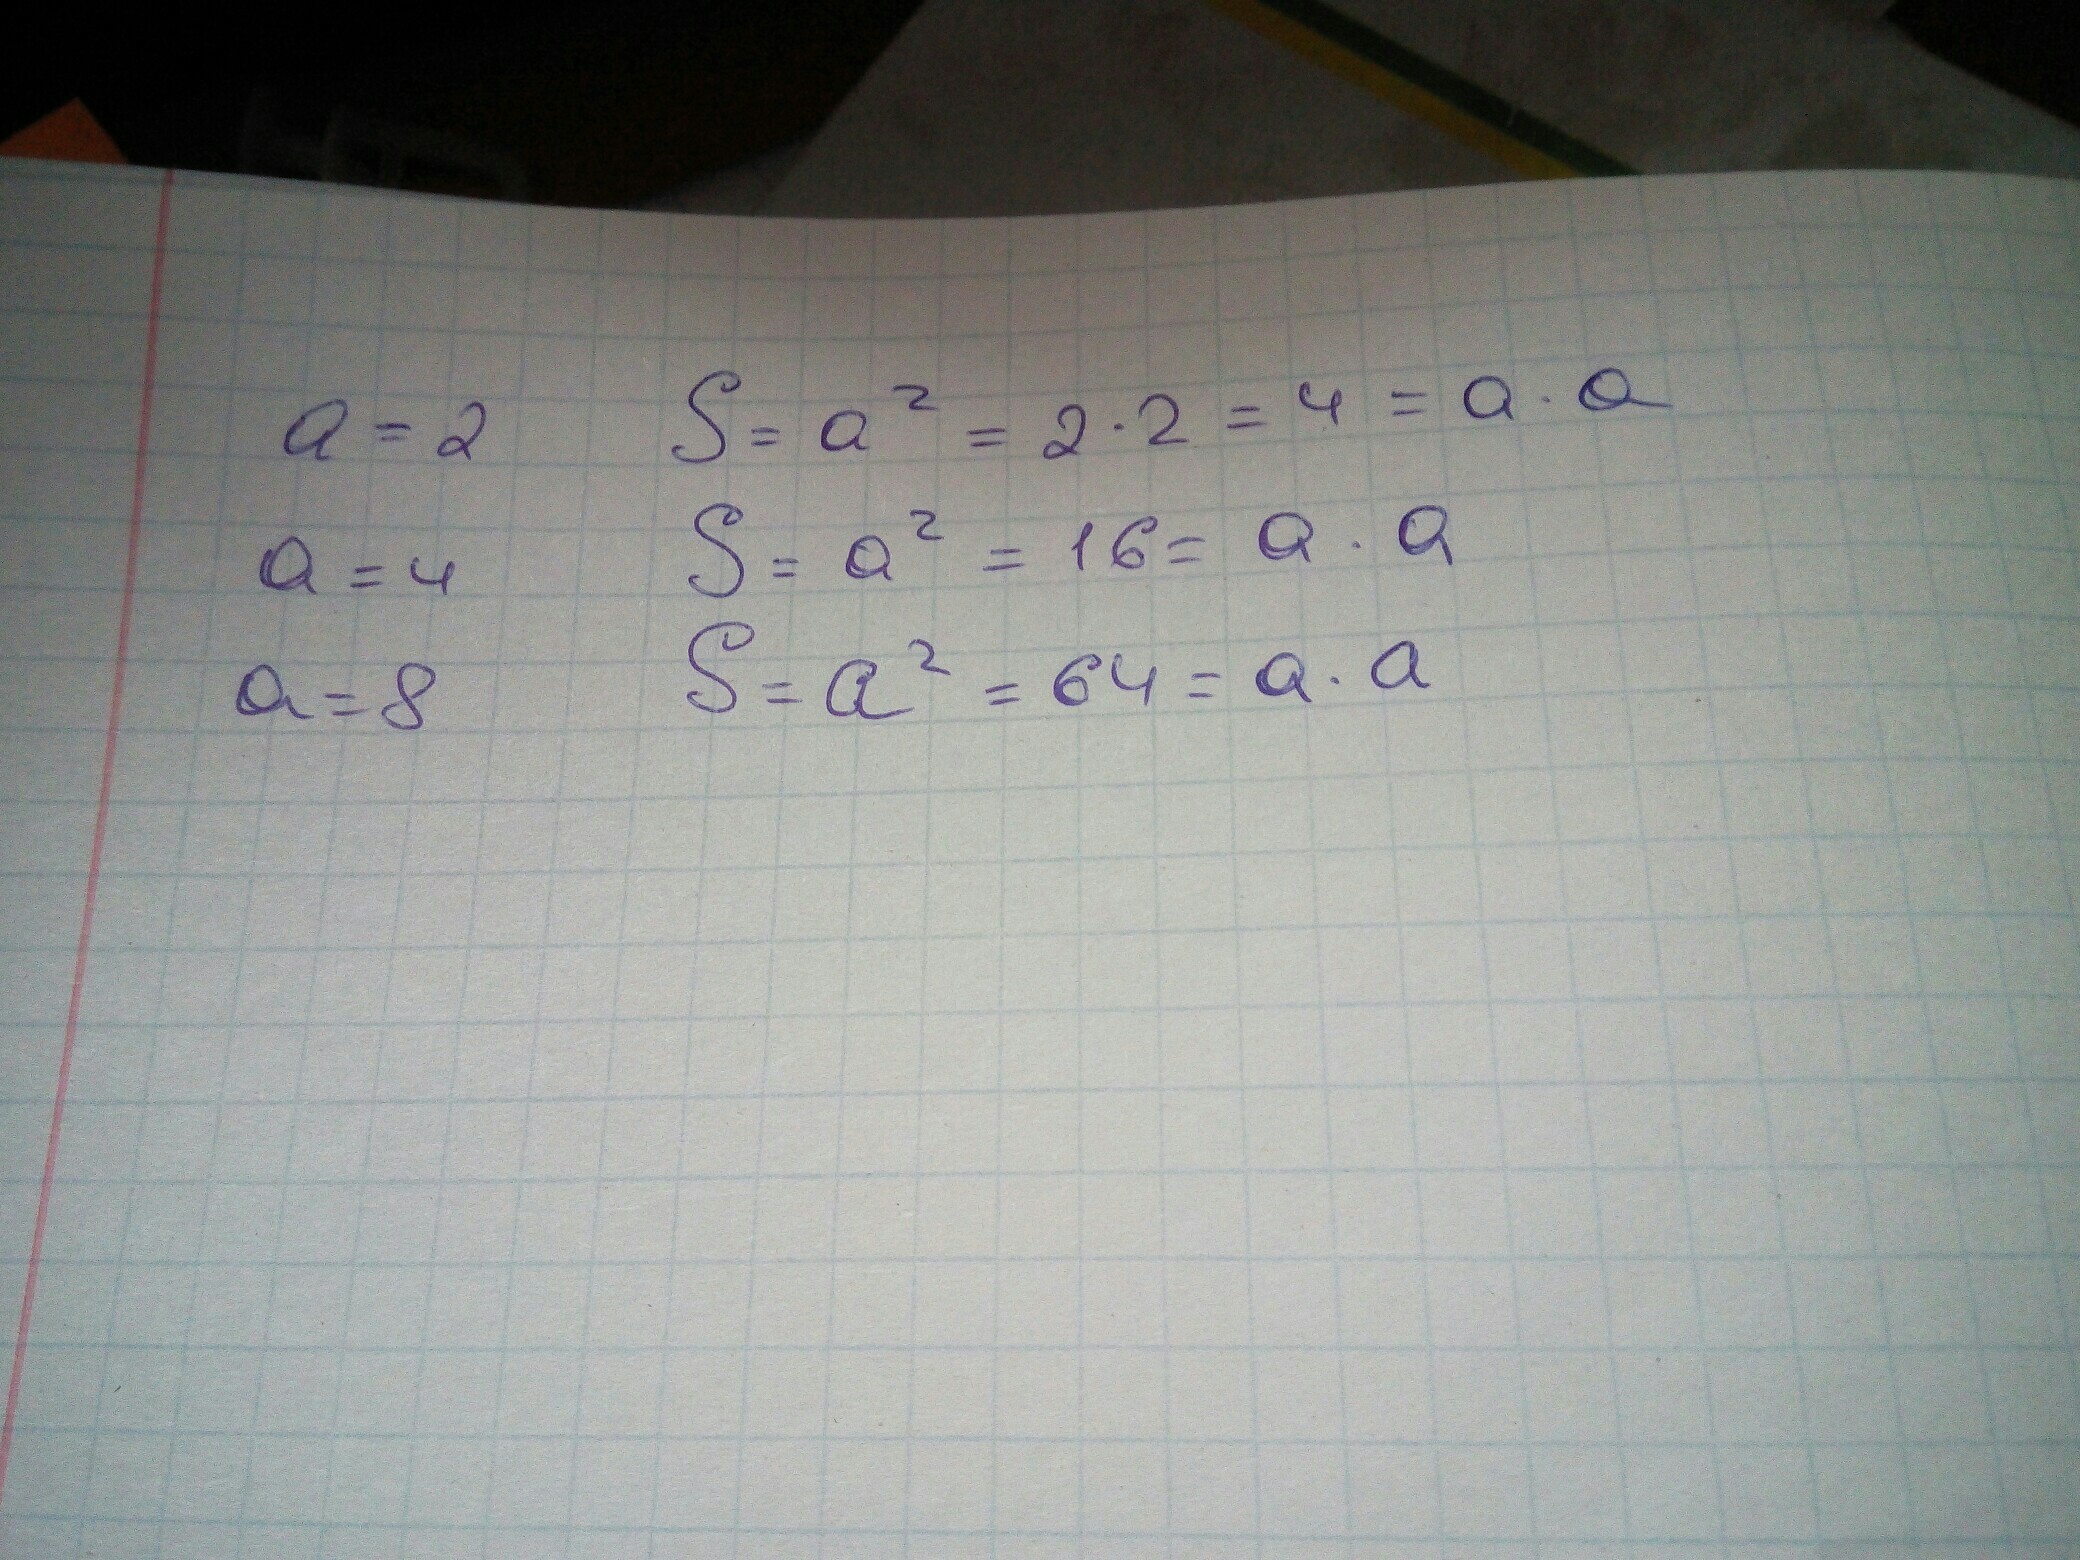 a = 2 S = a² = 2 · 2 = 4 = a · a
a = 4 S = a² = 16 = a · a
a = 8 S = a² = 64 = a · a